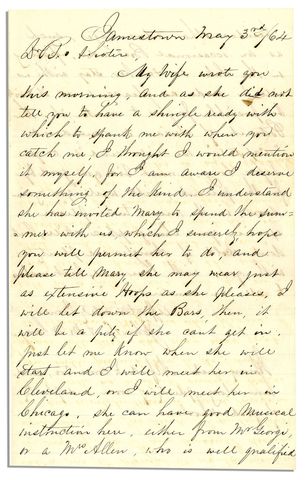 Jamestown May 3rd/64
Sister
My Wife wrote you
this morning, and as she did not
tell you to have a shingle ready with
which to spank me with when you
catch me, I thought I would mention
it myself. for I am aware I deserve
something of the kind. I understand
she has invited Mary to spend the sum-
-mer with us, which I sincerely hope
you will permit her to do, and
please tell Mary she may wear just
as extensive Hoops as she pleases, I
will let down the Bars, then, it
will be a pity if she cant get in.
just let me know when she will
start and I will meet her in
Cleveland, or I will meet her in
Chicago, she can have good Musical
instruction here, either from Mr George,
or a Mrs Allen, who is well qualified